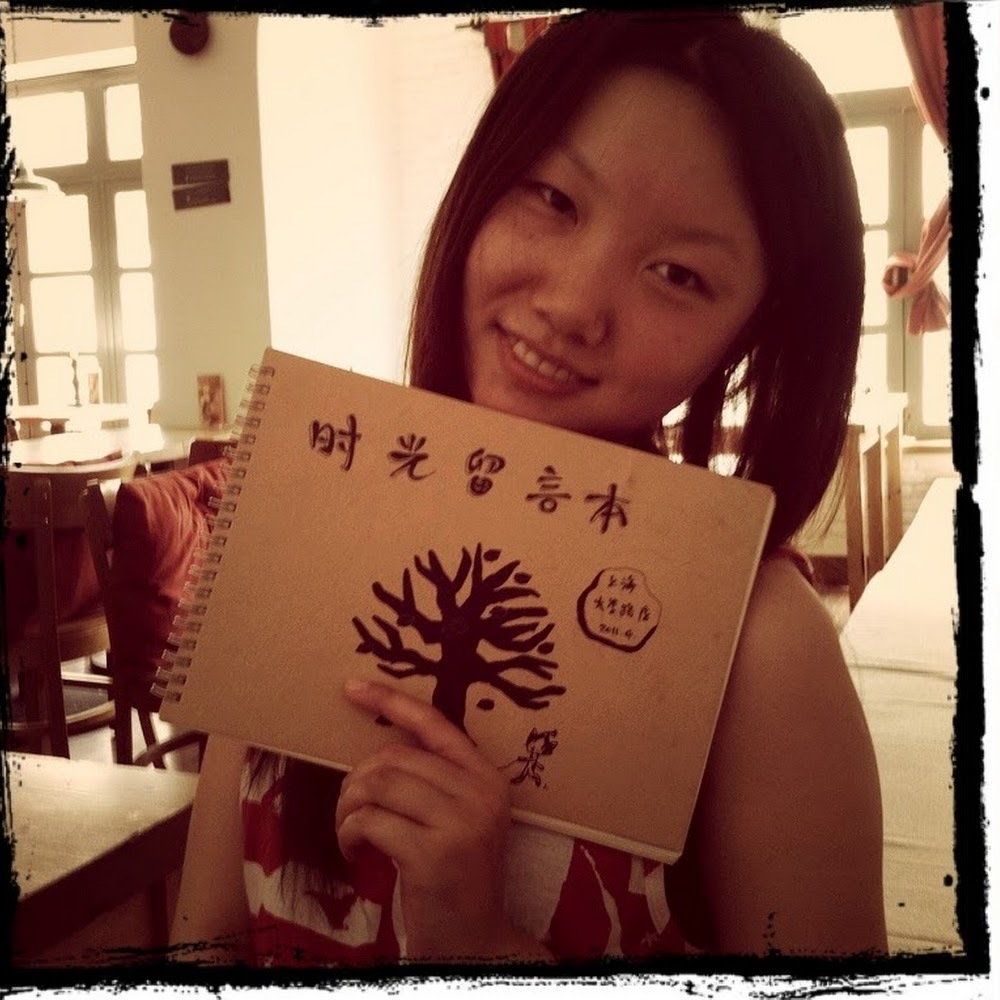 时光留言本
上海
大学路店
2011.4